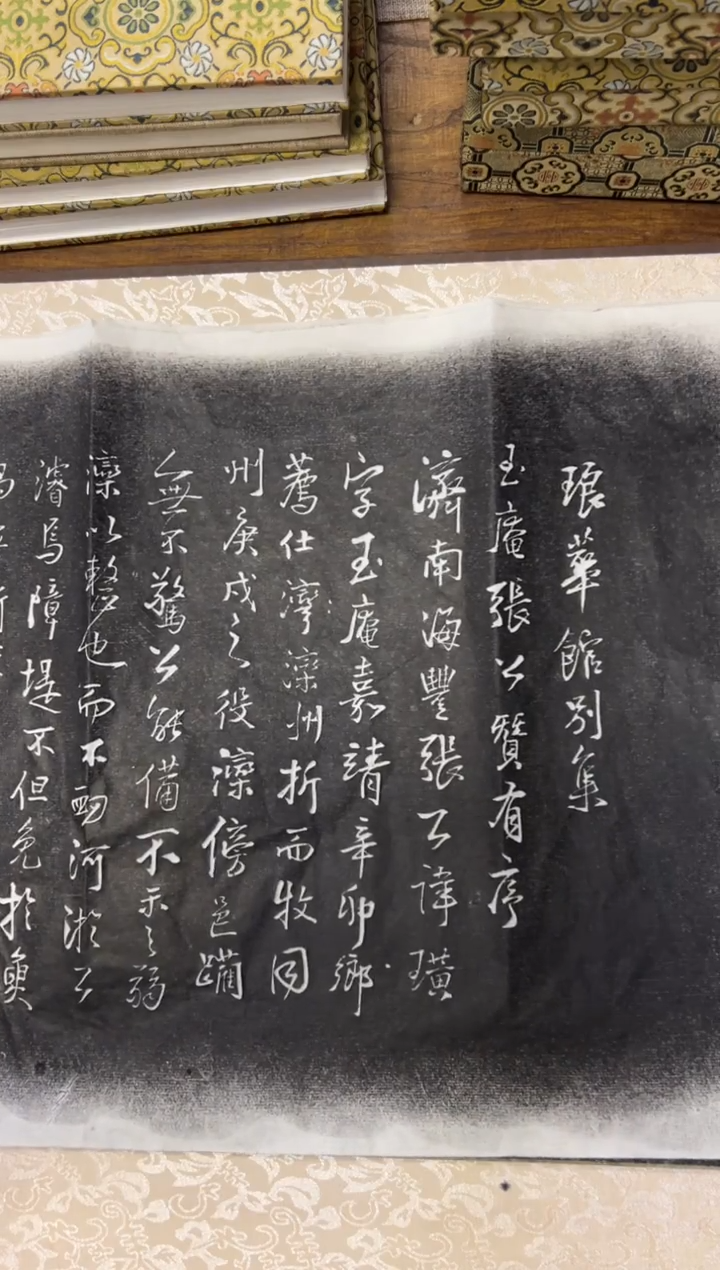 琅華館別集
玉庵張公贊有序
濟南海豐張公諱璜
字玉庵嘉靖辛卯鄉
薦仕濘灤州折而牧同
州庚戌之役灤傍邑躪
無不驚公能備不示之弱
灤以整也而不動河淤公
濬為障堤不但免於魚